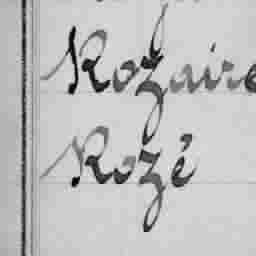 Rozaire
Rozé